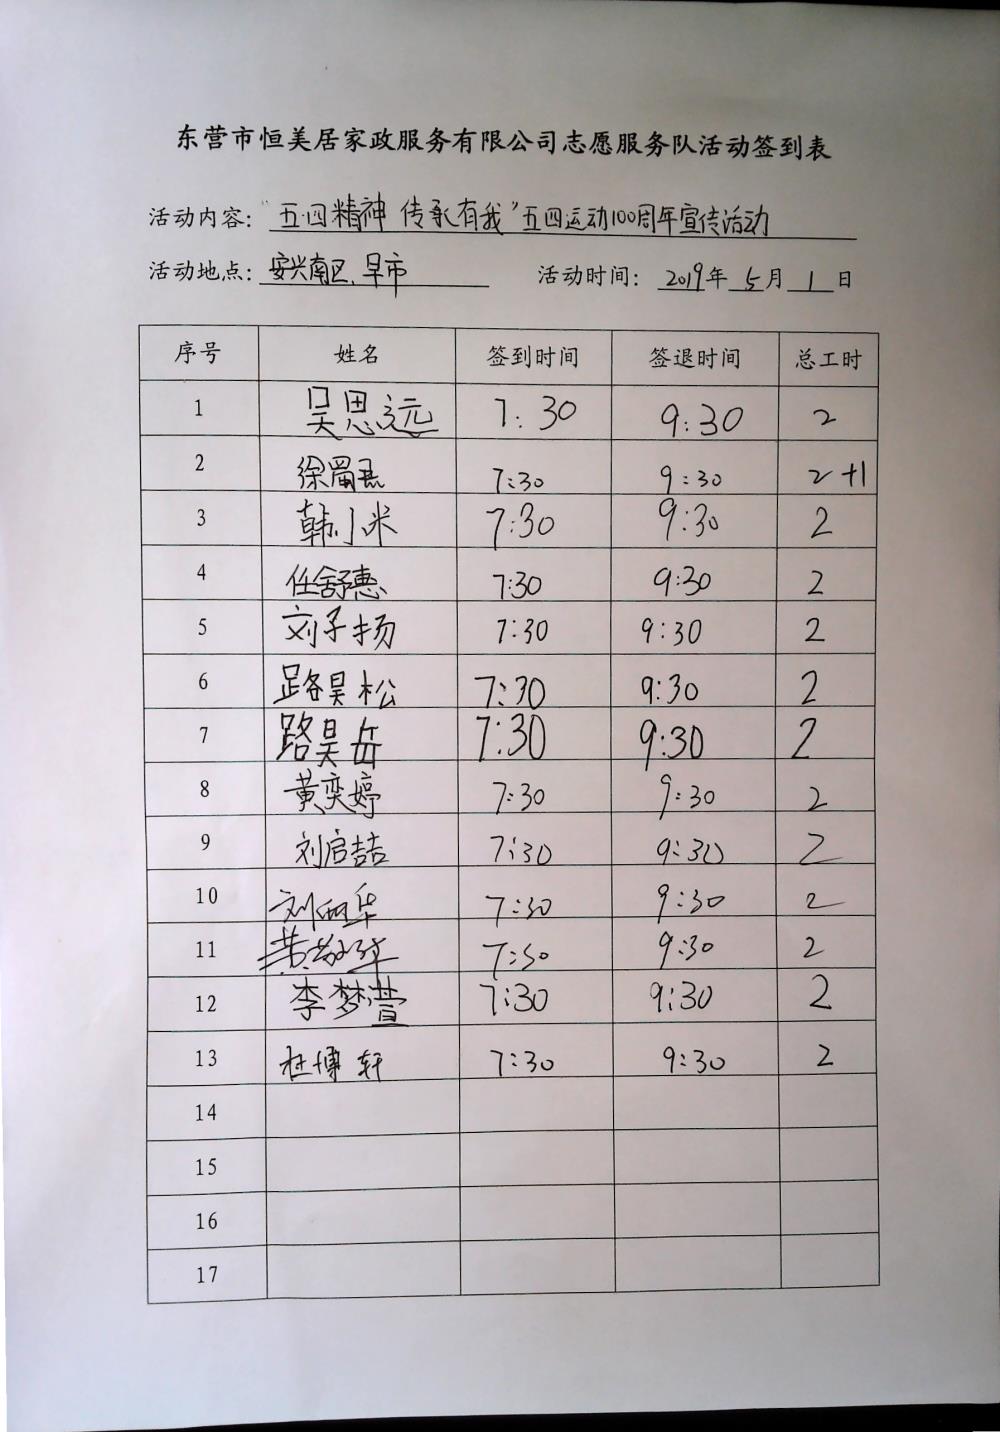 东营市恒美居家政服务有限公司志愿服务队活动签到表
活动内容: "五·四精神 传承有我"五四运动100周年宣传活动
活动地点: 安兴南区.早市 活动时间: 2019年 5月 1日
序号 姓名 签到时间 签退时间 总工时
1 吴思远 7:30 9:30 2
2 徐 7:30 9:30 2+1
3 韩小米 7:30 9:30 2
4 任舒惠 7:30 9:30 2
5 刘子扬 7:30 9:30 2
6 路昊松 7:30 9:30 2
7 路昊岳 7:30 9:30 2
8 黄奕婷 7:30 9:30 2
9 刘启喆 7:30 9:30 2
10 刘 华 7:30 9:30 2
11 黄 华 7:30 9:30 2
12 李梦萱 7:30 9:30 2
13 杜博轩 7:30 9:30 2
14
15
16
17